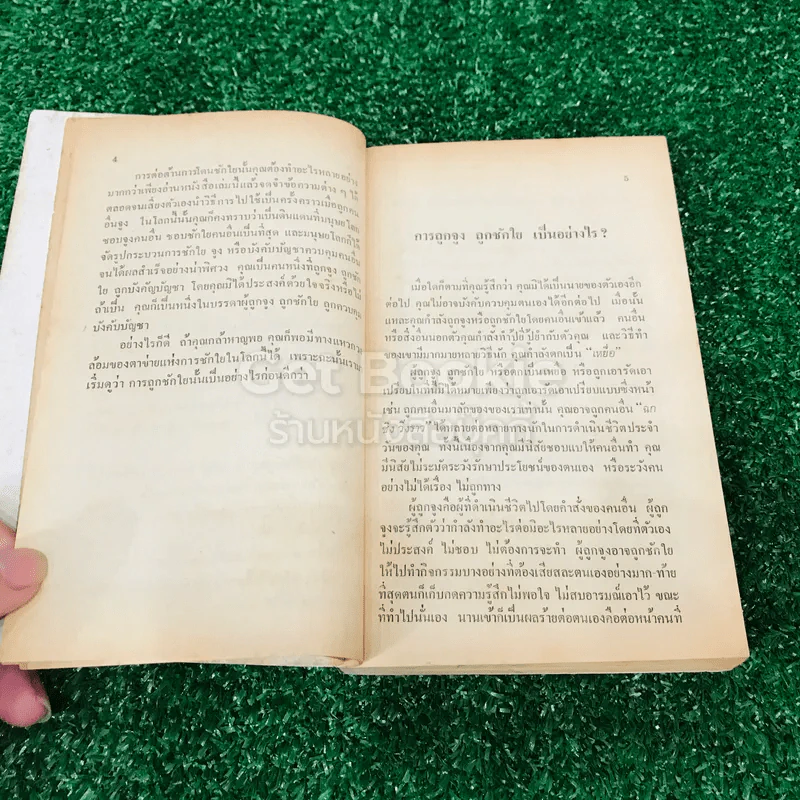 4
การต่อต้านการโดนชักใยนั้นคุณต้องทำอะไรหลายอย่าง
มากกว่าเพียงอ่านหนังสือเล่มนี้แล้วจดจำข้อความต่าง ๆ ได้
ตลอดจนเสี่ยงตัวเองนำวิธีการไปใช้เป็นครั้งคราวเมื่อถูกคน
อื่นจูง ในโลกนี้นั้นคุณก็คงทราบว่าเป็นดินแดนที่มนุษย์
ชอบจูงคนอื่น ชอบชักใยคนอื่นเป็นที่สุด และมนุษย์โลกก็ได้
จัดรูปกระบวนการชักใย จูง หรือบังคับบัญชาควบคุมคนอื่น
จนได้ผลสำเร็จอย่างน่าพิศวง คุณเป็นคนหนึ่งที่ถูกจูง ถูกชัก
ใย ถูกบังคับบัญชา โดยคุณมิได้ประสงค์ด้วยใจจริงหรือไม่
ถ้าเป็น คุณก็เป็นหนึ่งในบรรดาผู้ถูกจูง ถูกชักใย ถูกควบคุม
บังคับบัญชา
อย่างไรก็ดี ถ้าคุณกล้าหาญพอ คุณก็พอมีทางแหวก
ล้อมของตาข่ายแห่งการชักใยในโลกนี้ได้ เพราะฉะนั้นเรามา
เริ่มดูว่า การถูกชักใยนั้นเป็นอย่างไรก่อนดีกว่า
5
การถูกจูง ถูกชักใย เป็นอย่างไร?
เมื่อใดก็ตามที่คุณรู้สึกว่า คุณมิได้เป็นนายของตัวเองอีก
ต่อไป คุณไม่อาจบังคับควบคุมตนเองได้อีกต่อไป เมื่อนั้น
แหละคุณกำลังถูกจูงหรือถูกชักใยโดยคนอื่นเข้าแล้ว คนอื่น
หรือสิ่งอื่นนอกตัวคุณกำลังทำปู้ยี่ ปู้ยำกับตัวคุณ และวิธีทำ
ของเขามีมากมายหลายวิธีนัก คุณกำลังตกเป็น "เหยื่อ"
ผู้ถูกจูง ถูกชักใย หรือตกเป็นเหยื่อ หรือถูกเอารัดเอา
เปรียบในที่นี้ได้หมายเพียงว่าถูกเอารัดเอาเปรียบแบบซึ่งหน้า
เช่น ถูกคนอื่นมาลักของของเราเท่านั้น คุณอาจถูกคนอื่น "ฉก
ชิง วิ่งราว" ได้หลายต่อหลายทางนักในการดำเนินชีวิตประจำ
วันของคุณ ทั้งนี้เนื่องจากคุณมีนิสัยชอบแบให้คนอื่นทำ คุณ
มีนิสัยไม่ระมัดระวังรักษาประโยชน์ของตนเอง หรือระวังคน
อย่างไม่ได้เรื่อง ไม่ถูกทาง
ผู้ถูกจูงคือผู้ที่ดำเนินชีวิตไปโดยคำสั่งของคนอื่น ผู้ถูก
จูงจะรู้สึกตัวว่ากำลังทำอะไรต่อมิอะไรหลายอย่างโดยที่ตัวเอง
ไม่ประสงค์ ไม่ชอบ ไม่ต้องการจะทำ ผู้ถูกจูงอาจถูกชักใย
ให้ไปทำกิจกรรมบางอย่างที่ต้องเสียสละตนเองอย่างมาก-ท้าย
ที่สุดตนก็เก็บกดความรู้สึกไม่พอใจ ไม่สบอารมณ์เอาไว้ ขณะ
ที่ทำไปนั่นเอง นานเข้าก็เป็นผลร้ายต่อตนเองคือต่อหน้าคนที่
Get Bookie
ร้านหนังสือมือ